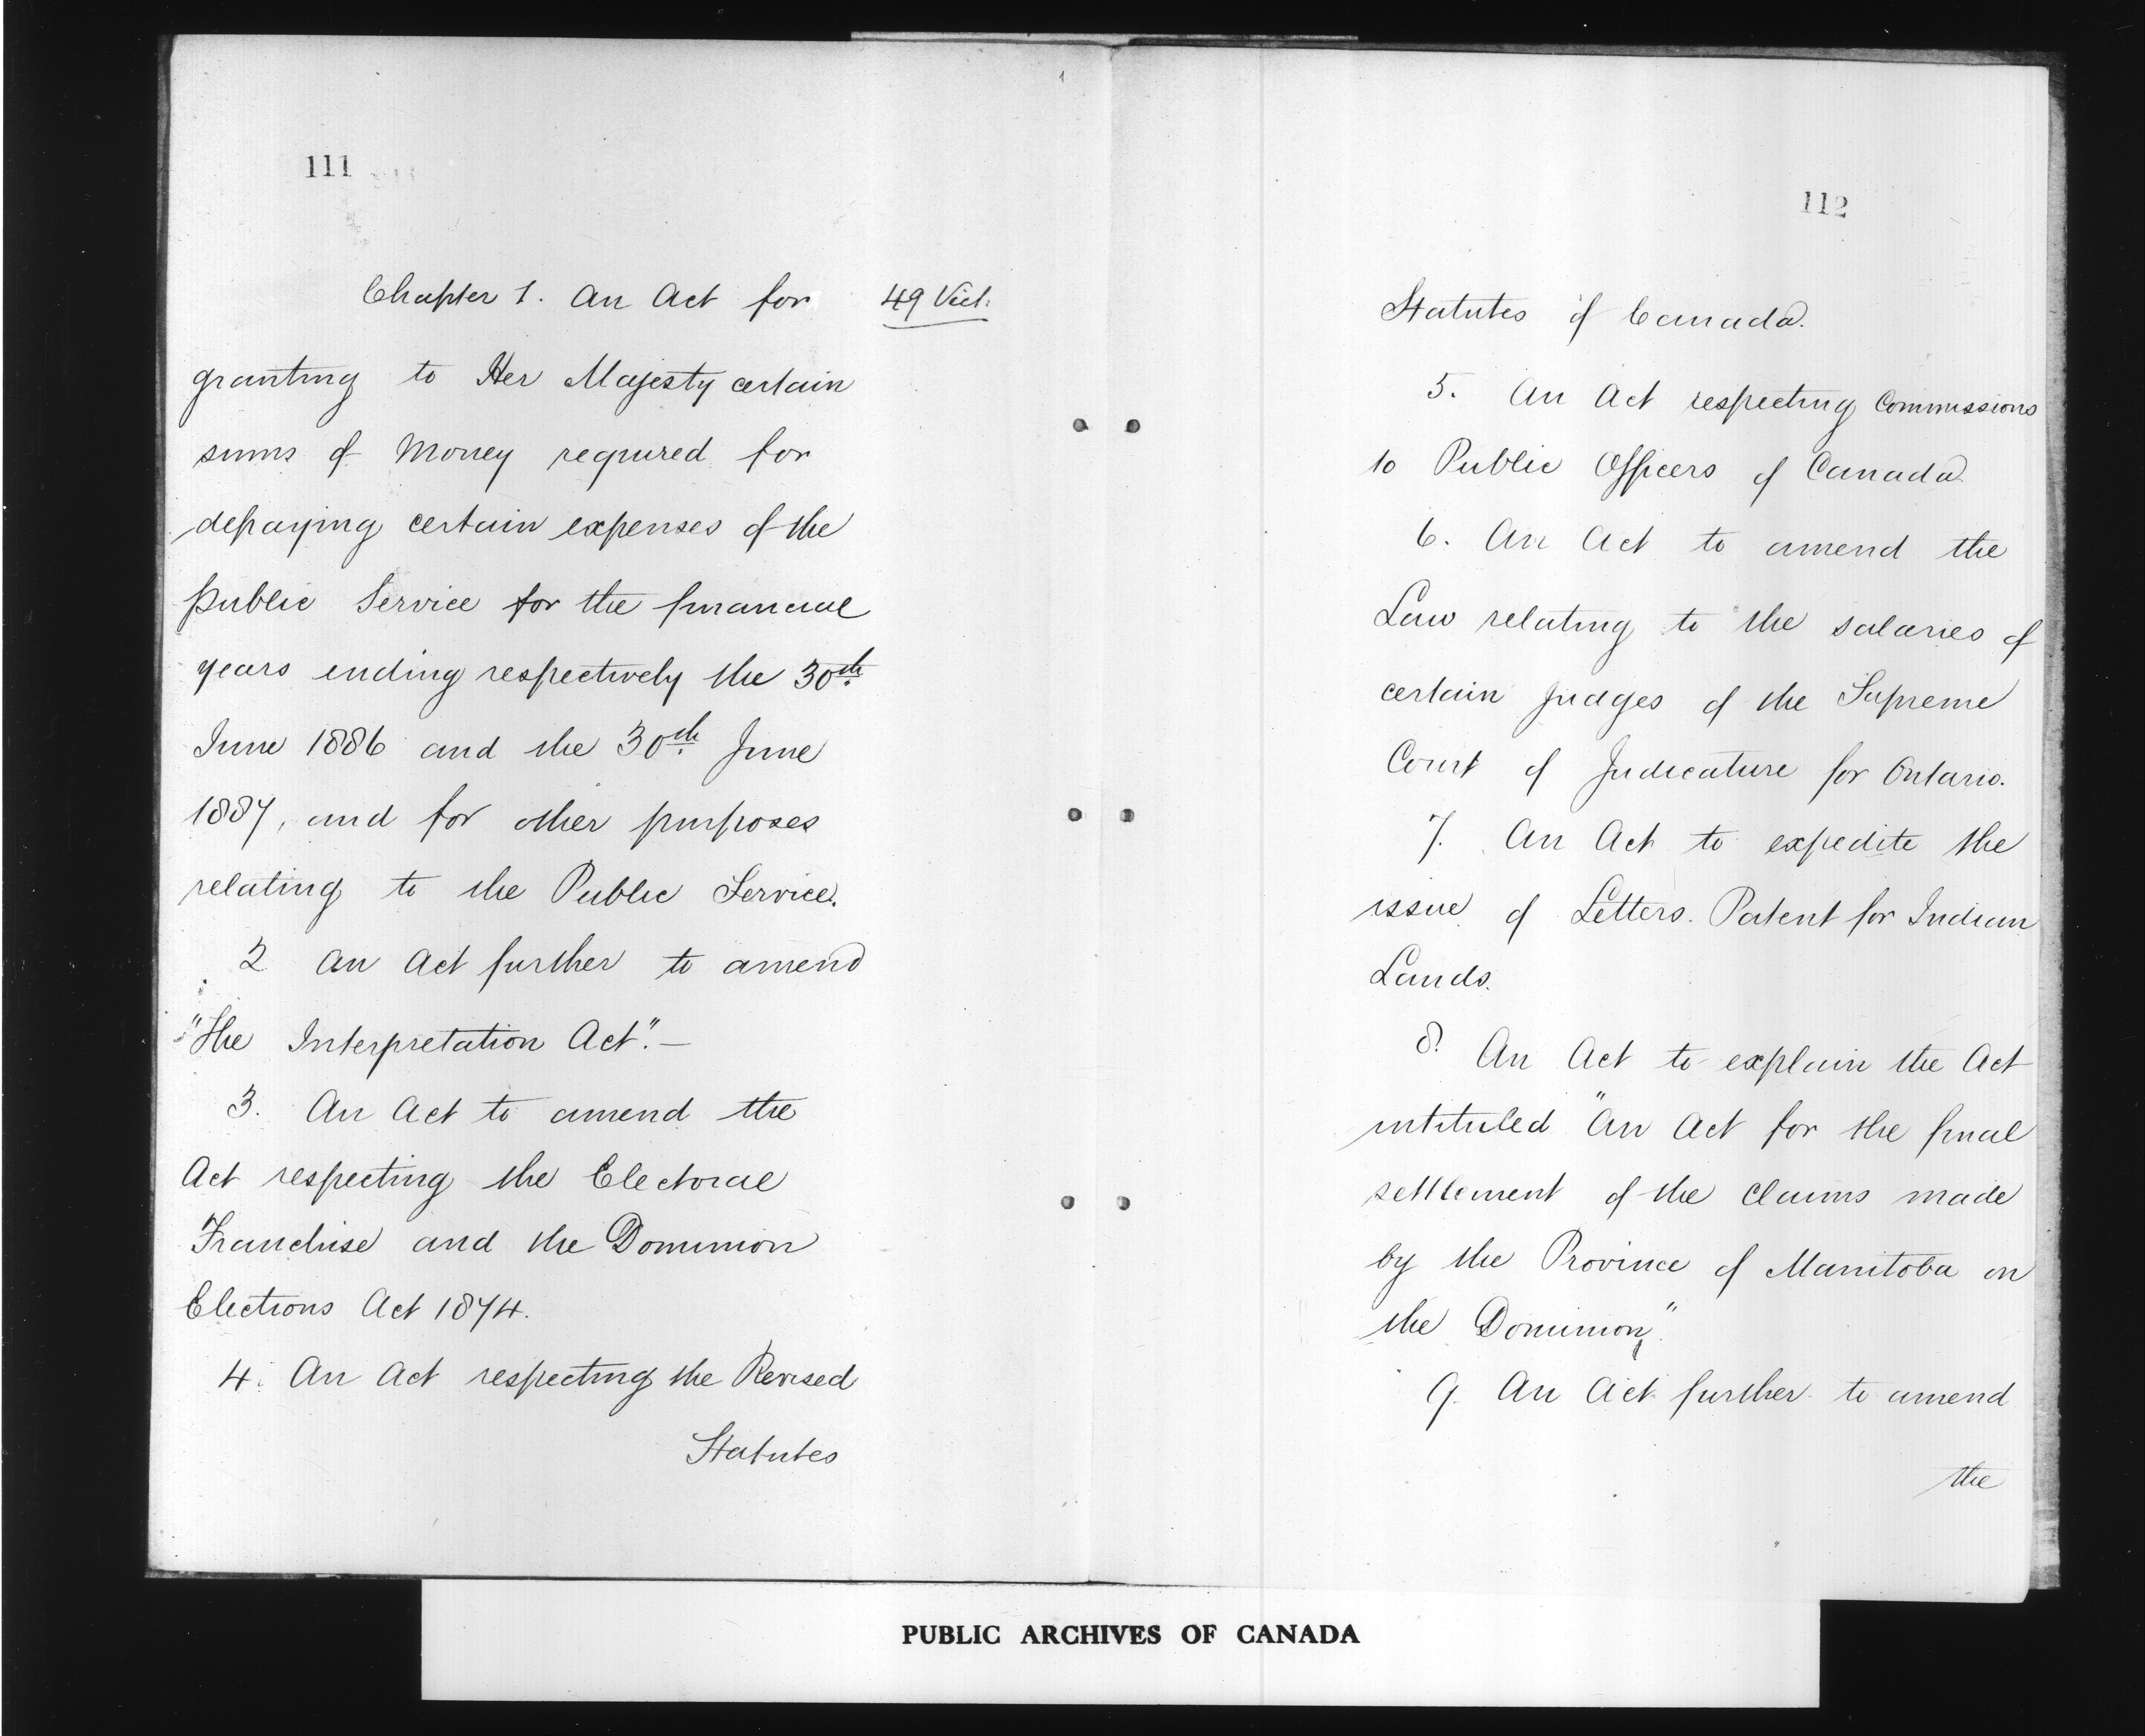 111
Chapter 1. An Act for 49 Vict.
granting to Her Majesty certain
sums of Money required for
defraying certain expenses of the
public Service for the financial
years ending respectively the 30th
June 1886 and the 30th June
1887, and for other purposes
relating to the Public Service.
2 An Act further to amend
"The Interpretation Act".—
3. An Act to amend the
Act respecting the Electoral
Franchise and the Dominion
Elections Act 1874.
4. An Act respecting the Revised
Statutes
112
Statutes of Canada.
5. An Act respecting Commissions
to Public Officers of Canada.
6. An Act to amend the
Law relating to the salaries of
certain Judges of the Supreme
Court of Judicature for Ontario.
7. An Act to expedite the
issue of Letters. Patent for Indian
Lands.
8. An Act to explain the Act
intituled "An Act for the final
settlement of the claims made
by the Province of Manitoba on
the Dominion".
9. An Act further to amend
the
PUBLIC ARCHIVES OF CANADA